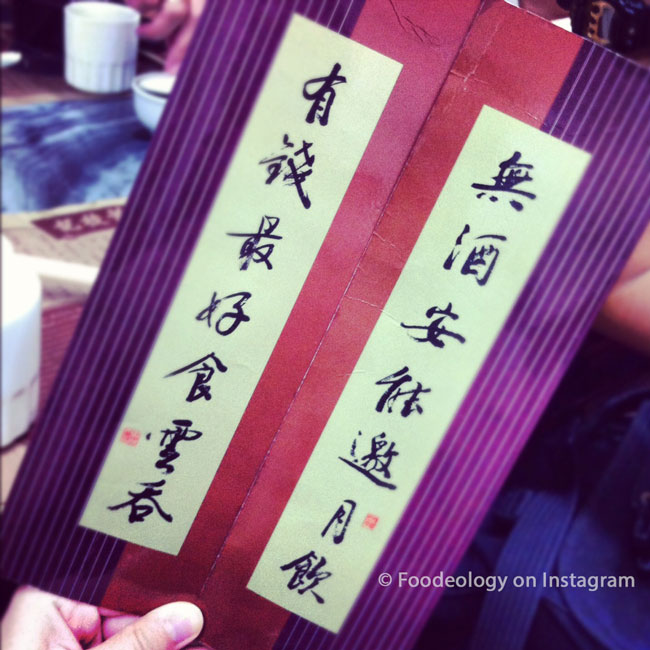 無酒安能邀月飲
有錢最好食雲吞
© Foodeology on Instagram